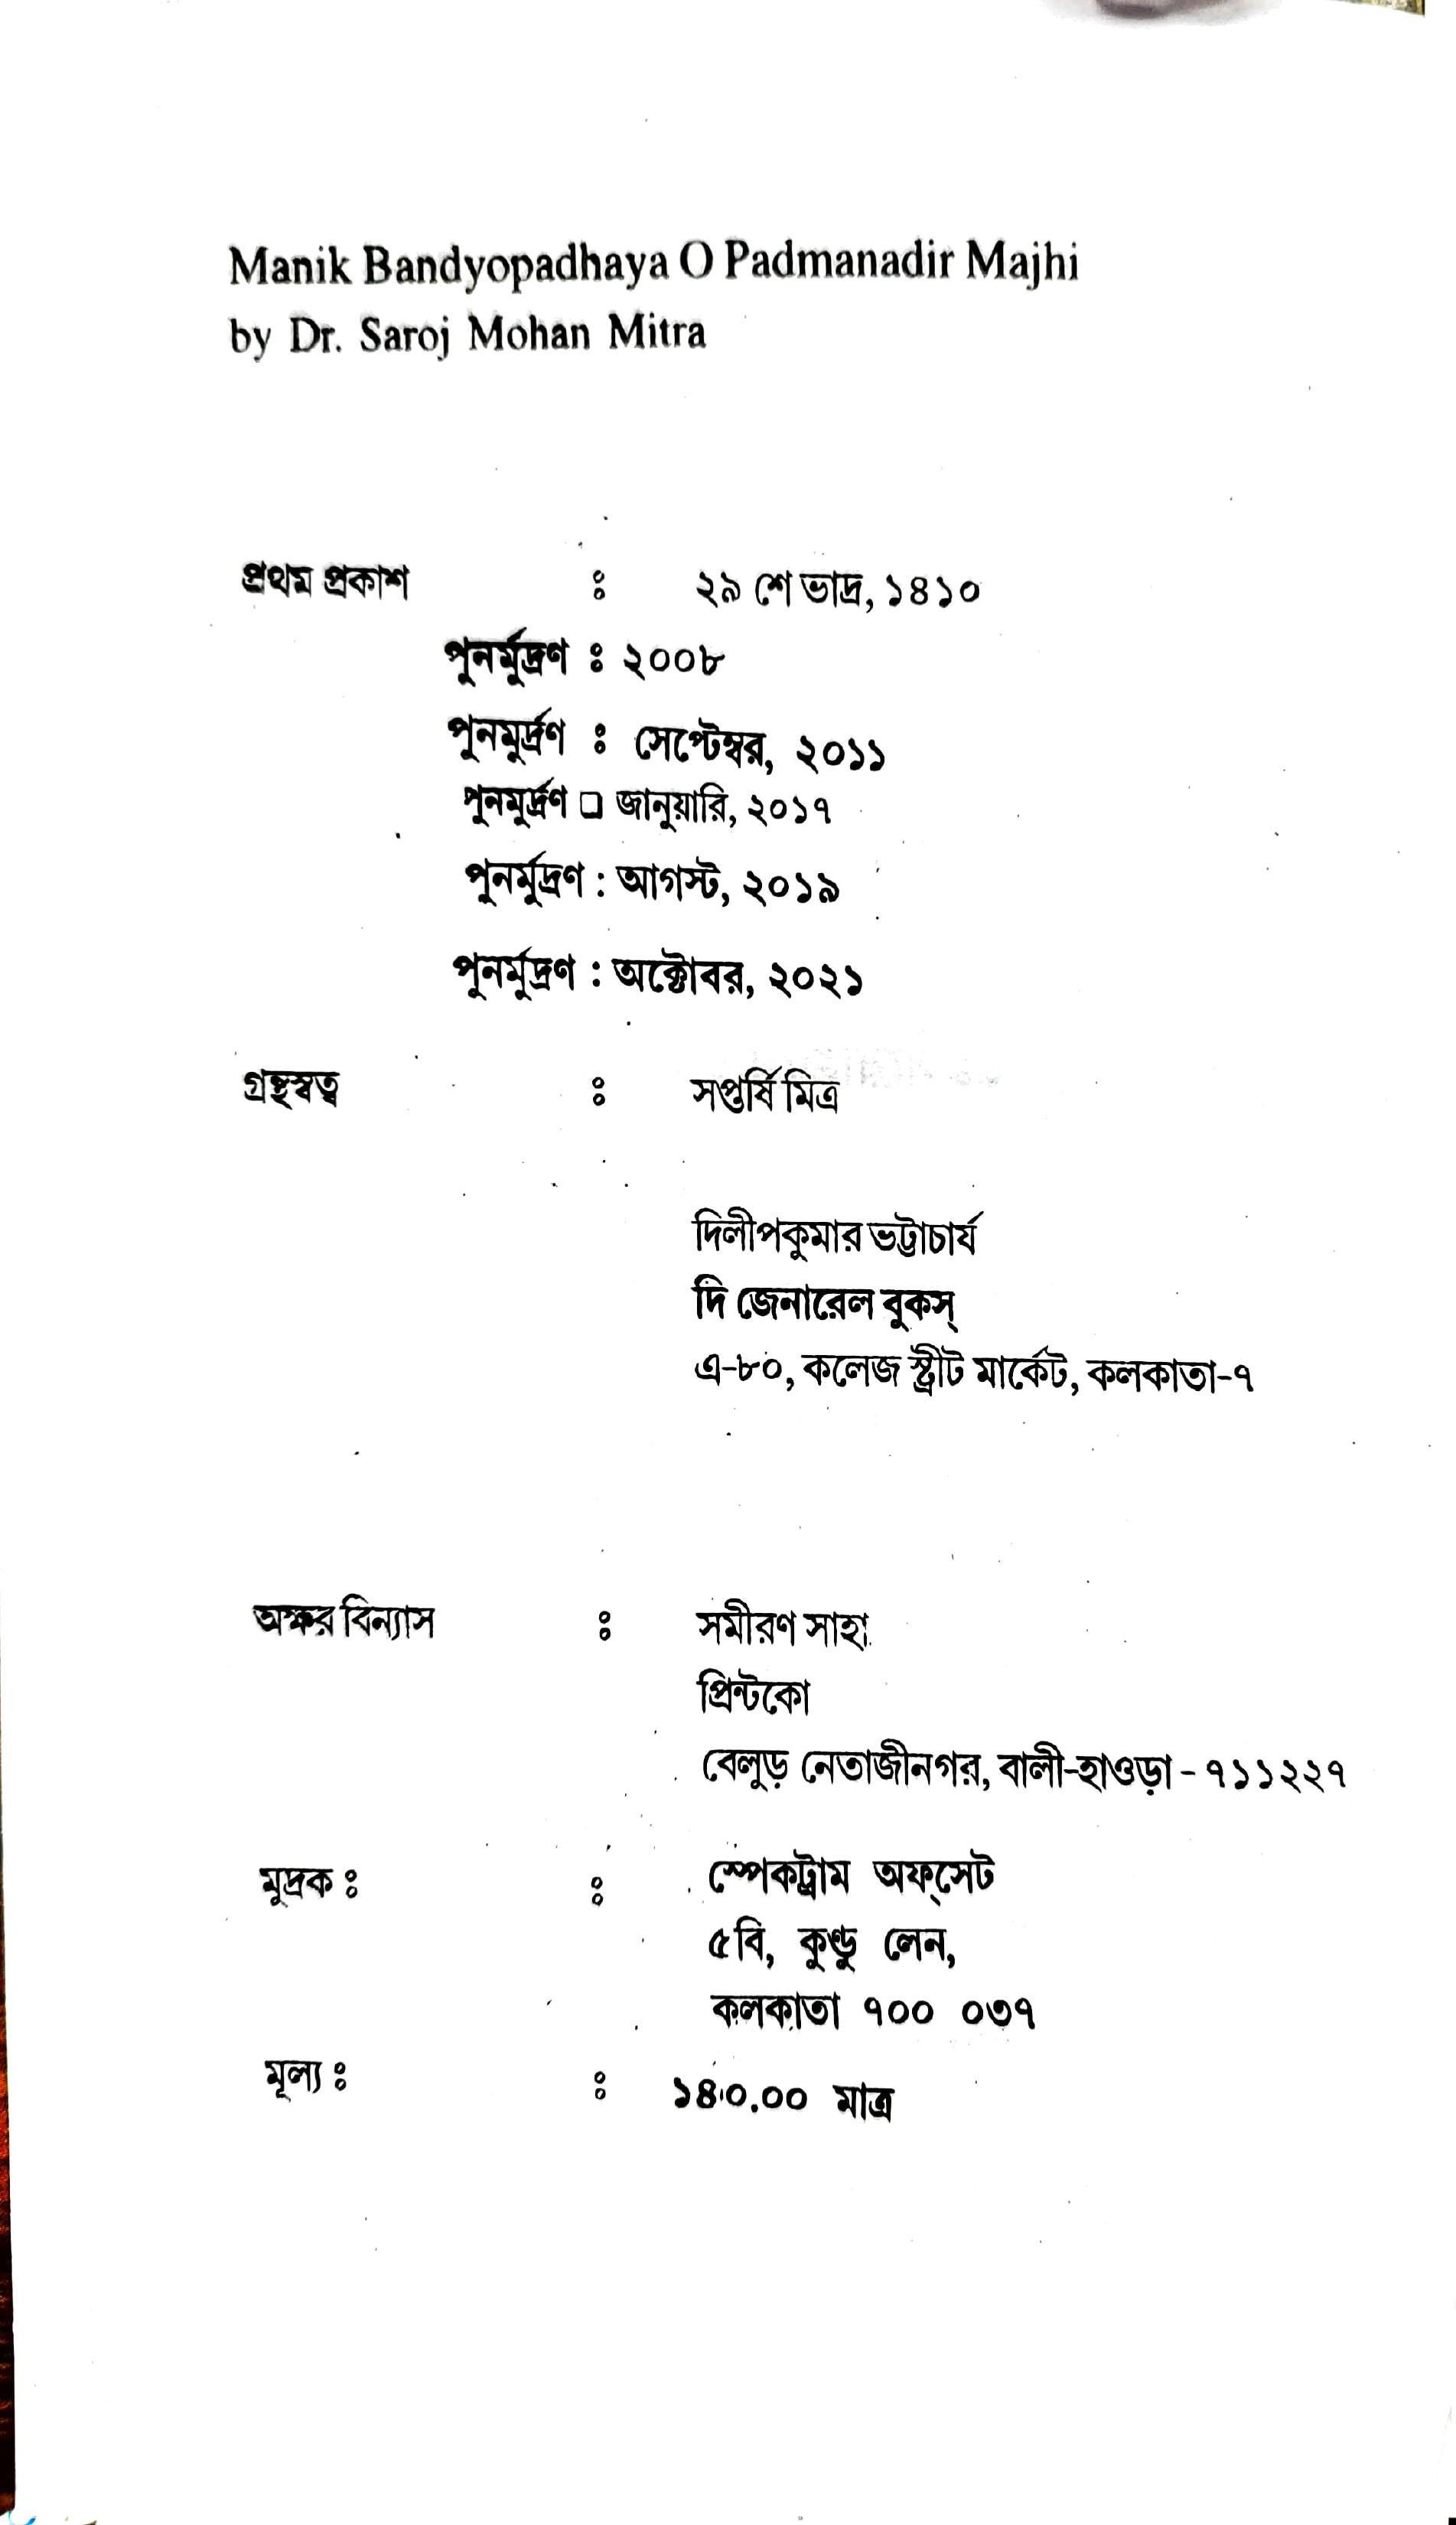 Manik Bandyopadhaya O Padmanadir Majhi
by Dr. Saroj Mohan Mitra
প্রথম প্রকাশ : ২৯ শে ভাদ্র, ১৪১০
পুনর্মুদ্রণ : ২০০৮
পুনমুর্দ্রণ : সেপ্টেম্বর, ২০১১
পুনমুর্দ্রণ □ জানুয়ারি, ২০১৭
পুনর্মুদ্রণ : আগস্ট, ২০১৯
পুনর্মুদ্রণ : অক্টোবর, ২০২১
গ্রন্থস্বত্ব : সপ্তর্ষি মিত্র
দিলীপকুমার ভট্টাচার্য
দি জেনারেল বুকস্
এ-৮০, কলেজ স্ট্রীট মার্কেট, কলকাতা-৭
অক্ষর বিন্যাস : সমীরণ সাহা
প্রিন্টকো
বেলুড় নেতাজীনগর, বালী-হাওড়া - ৭১১২২৭
মুদ্রক : : স্পেকট্রাম অফ্‌সেট
৫বি, কুণ্ডু লেন,
কলকাতা ৭০০ ০৩৭
মূল্য : : ১৪০.০০ মাত্র